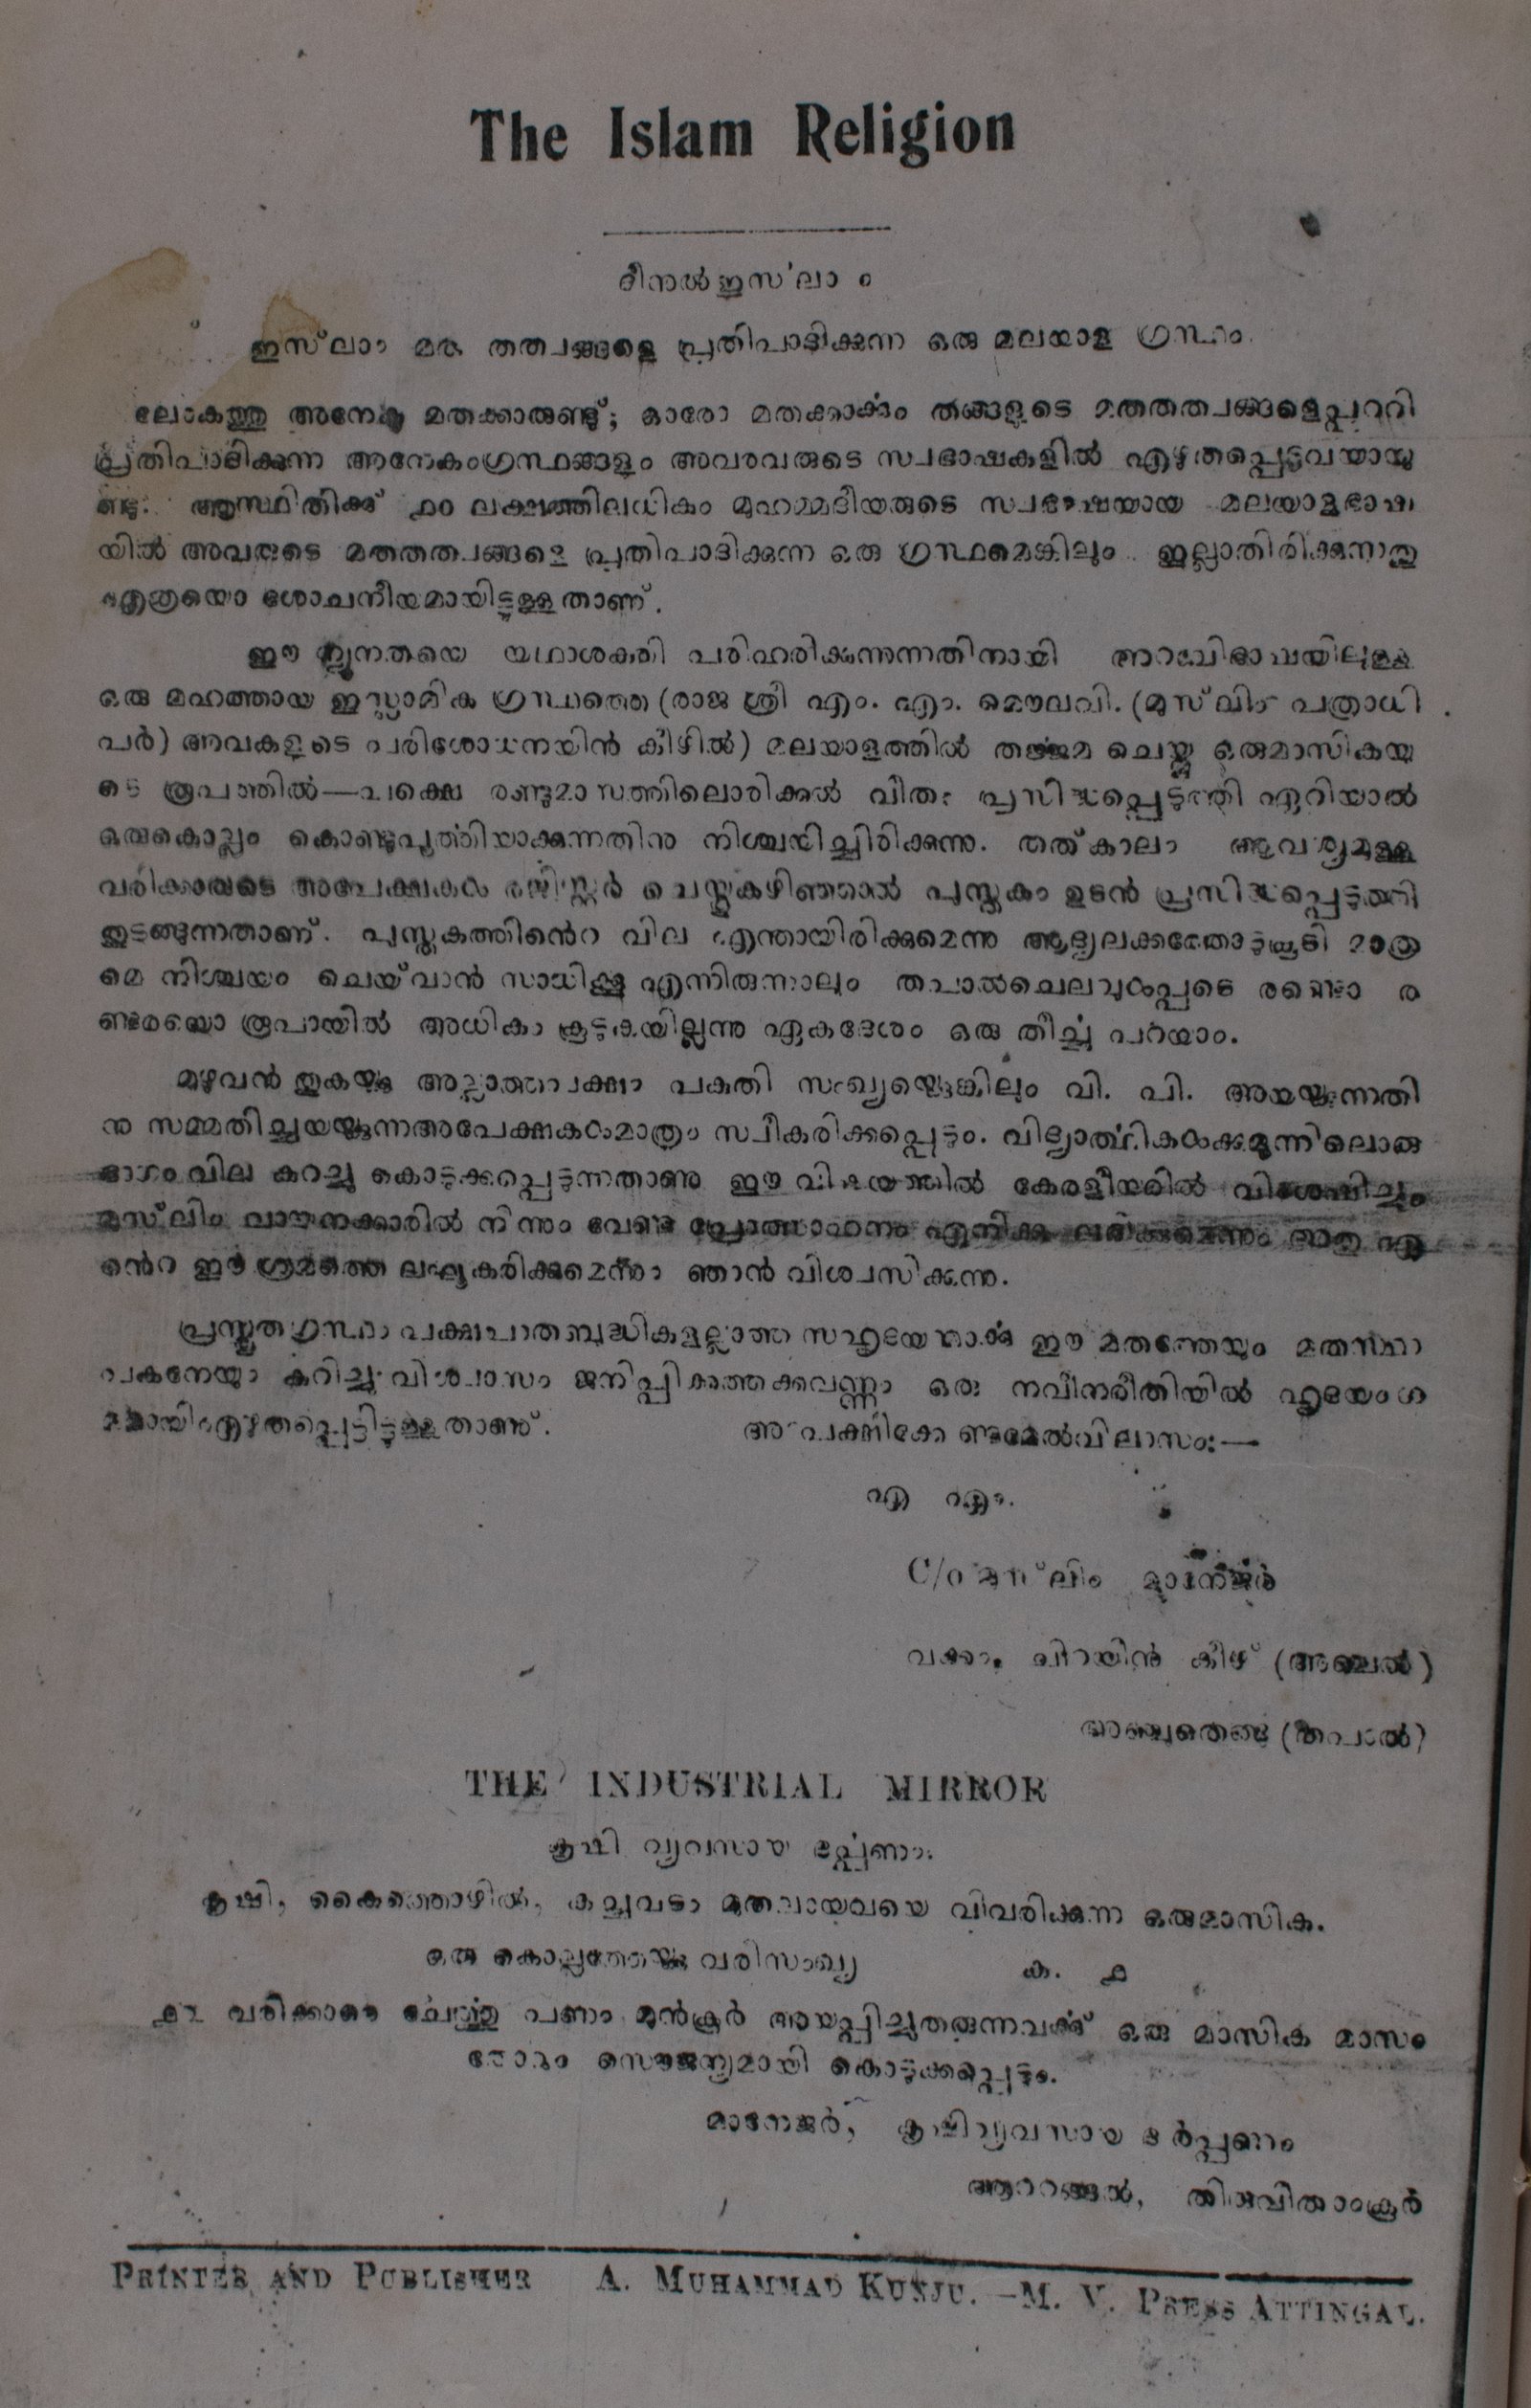 The Islam Religion
ദീനുൽ ഇസ്‌ലാം
ഇസ്‌ലാം മത തത്വങ്ങളെ പ്രതിപാദിക്കുന്ന ഒരു മലയാള ഗ്രന്ഥം.
ലോകത്തു അനേക മതക്കാരുണ്ടു്; ഓരോ മതക്കാൎക്കും തങ്ങളുടെ മതതത്വങ്ങളെപ്പററി
പ്രതിപാദിക്കുന്ന അനേകംഗ്രന്ഥങ്ങളും അവരവരുടെ സ്വഭാഷകളിൽ എഴുതപ്പെട്ടവയായു
ണ്ടു. ആസ്ഥിതിക്ക് ൧൦ ലക്ഷത്തിലധികം മുഹമ്മദീയരുടെ സ്വഭാഷയായ മലയാളഭാഷ
യിൽ അവരുടെ മതതത്വങ്ങളെ പ്രതിപാദിക്കുന്ന ഒരു ഗ്രന്ഥമെങ്കിലും ഇല്ലാതിരിക്കുന്നതു
എത്രയൊ ശോചനീയമായിട്ടുള്ളതാണ്.
ഈ ന്യൂനതയെ യഥാശക്തി പരിഹരിക്കുന്നതിനായി അറബിഭാഷയിലുള്ള
ഒരു മഹത്തായ ഇസ്ലാമിക ഗ്രന്ഥത്തെ (രാജ ശ്രീ എം. എം. മൌലവി. (മുസ്‌ലിം പത്രാധി
പർ) അവകളുടെ പരിശോധനയിൻ കീഴിൽ) മലയാളത്തിൽ തൎജ്ജമ ചെയ്തു ഒരുമാസികയു
ടെ രൂപത്തിൽ—പക്ഷെ രണ്ടുമാസത്തിലൊരിക്കൽ വീതം പ്രസിദ്ധപ്പെടുത്തി ഏറിയാൽ
ഒരുകൊല്ലം കൊണ്ടുപൂൎത്തിയാക്കുന്നതിനു നിശ്ചയിച്ചിരിക്കുന്നു. തത്കാലം ആവശ്യമുള്ള
വരിക്കാരുടെ അപേക്ഷകൾ രജിസ്റ്റർ ചെയ്തുകഴിഞ്ഞാൽ പുസ്തകം ഉടൻ പ്രസിദ്ധപ്പെടുത്തി
തുടങ്ങുന്നതാണ്. പുസ്തകത്തിൻെറ വില എന്തായിരിക്കുമെന്നു ആദ്യലക്കത്തോടുകൂടി മാത്ര
മെ നിശ്ചയം ചെയ്‌വാൻ സാധിക്കൂ എന്നിരുന്നാലും തപാൽചെലവുൾപ്പടെ രണ്ടൊ ര
ണ്ടരയൊ രൂപായിൽ അധികം കൂടുകയില്ലന്നു ഏകദേശം ഒരു തീൎച്ച പറയാം.
മുഴുവൻ തുകയ്ക്കു അല്ലാത്തപക്ഷം പകുതി സംഖ്യയ്ക്കെങ്കിലും വി. പി. അയയ്ക്കുന്നതി
നു സമ്മതിച്ചയയ്ക്കുന്നഅപേക്ഷകൾമാത്രം സ്വീകരിക്കപ്പെടും. വിദ്യാൎത്ഥികൾക്കുമൂന്നിലൊരു
ഭാഗം വില കുറച്ചു കൊടുക്കപ്പെടുന്നതാണു ഈ വിഷയത്തിൽ കേരളീയരിൽ വിശേഷിച്ചും
മുസ്‌ലിം വായനക്കാരിൽ നിന്നും വേണ്ട പ്രോത്സാഹനം എനിക്കു ലഭിക്കുമെന്നും അതു എ
ൻെറ ഈ ശ്രമത്തെ ലഘൂകരിക്കുമെന്നും ഞാൻ വിശ്വസിക്കുന്നു.
പ്രസ്തുതഗ്രന്ഥം പക്ഷപാതബുദ്ധികളല്ലാത്ത സഹൃദയന്മാൎക്കു ഈ മതത്തേയും മതസ്ഥാ
പകനേയും കുറിച്ചു വിശ്വാസം ജനിപ്പിക്കത്തക്കവണ്ണം ഒരു നവീനരീതിയിൽ ഹൃദയംഗ
മമായി എഴുതപ്പെട്ടിട്ടുള്ളതാണു്. അപേക്ഷിക്കേണ്ടുംമേൽവിലാസം:—
എ എം.
C/o മുസ്‌ലിം മാനേജർ
വക്കം, ചിറയിൻ കീഴ് (അഞ്ചൽ)
അഞ്ചുതെങ്ങു (തപാൽ)
THE INDUSTRIAL MIRROR
കൃഷി വ്യവസായ ദൎപ്പണം.
കൃഷി, കൈത്തൊഴിൽ, കച്ചവടം മുതലായവയെ വിവരിക്കുന്ന ഒരുമാസിക.
ഒരു കൊല്ലത്തേയ്ക്കു വരിസംഖ്യ ക. ൧
വരിക്കാരെ ചേൎത്തു പണം മുൻകൂർ അയപ്പിച്ചുതരുന്നവൎക്ക് ഒരു മാസിക മാസം
തോറും സൌജന്യമായി കൊടുക്കപ്പെടും.
മാനേജർ, കൃഷിവ്യവസായ ദർപ്പണം
ആററങ്ങൽ, തിരുവിതാംകൂർ
PRINTER AND PUBLISHER A. MUHAMMAD KUNJU.—M. V. PRESS ATTINGAL.